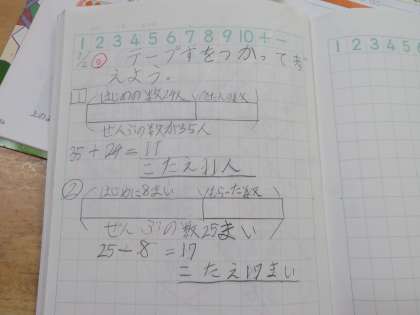 1 2 3 4 5 6 7 8 9 10 + −
テープずをつかって考
えよう。
1 はじめの数24人
ぜんぶの数が35人
35 + 24 = 11
こたえ11人
② はじめに8まい もらった数
ぜんぶの数25まい
25 − 8 = 17
こたえ17まい
1 2 3 4 5 6